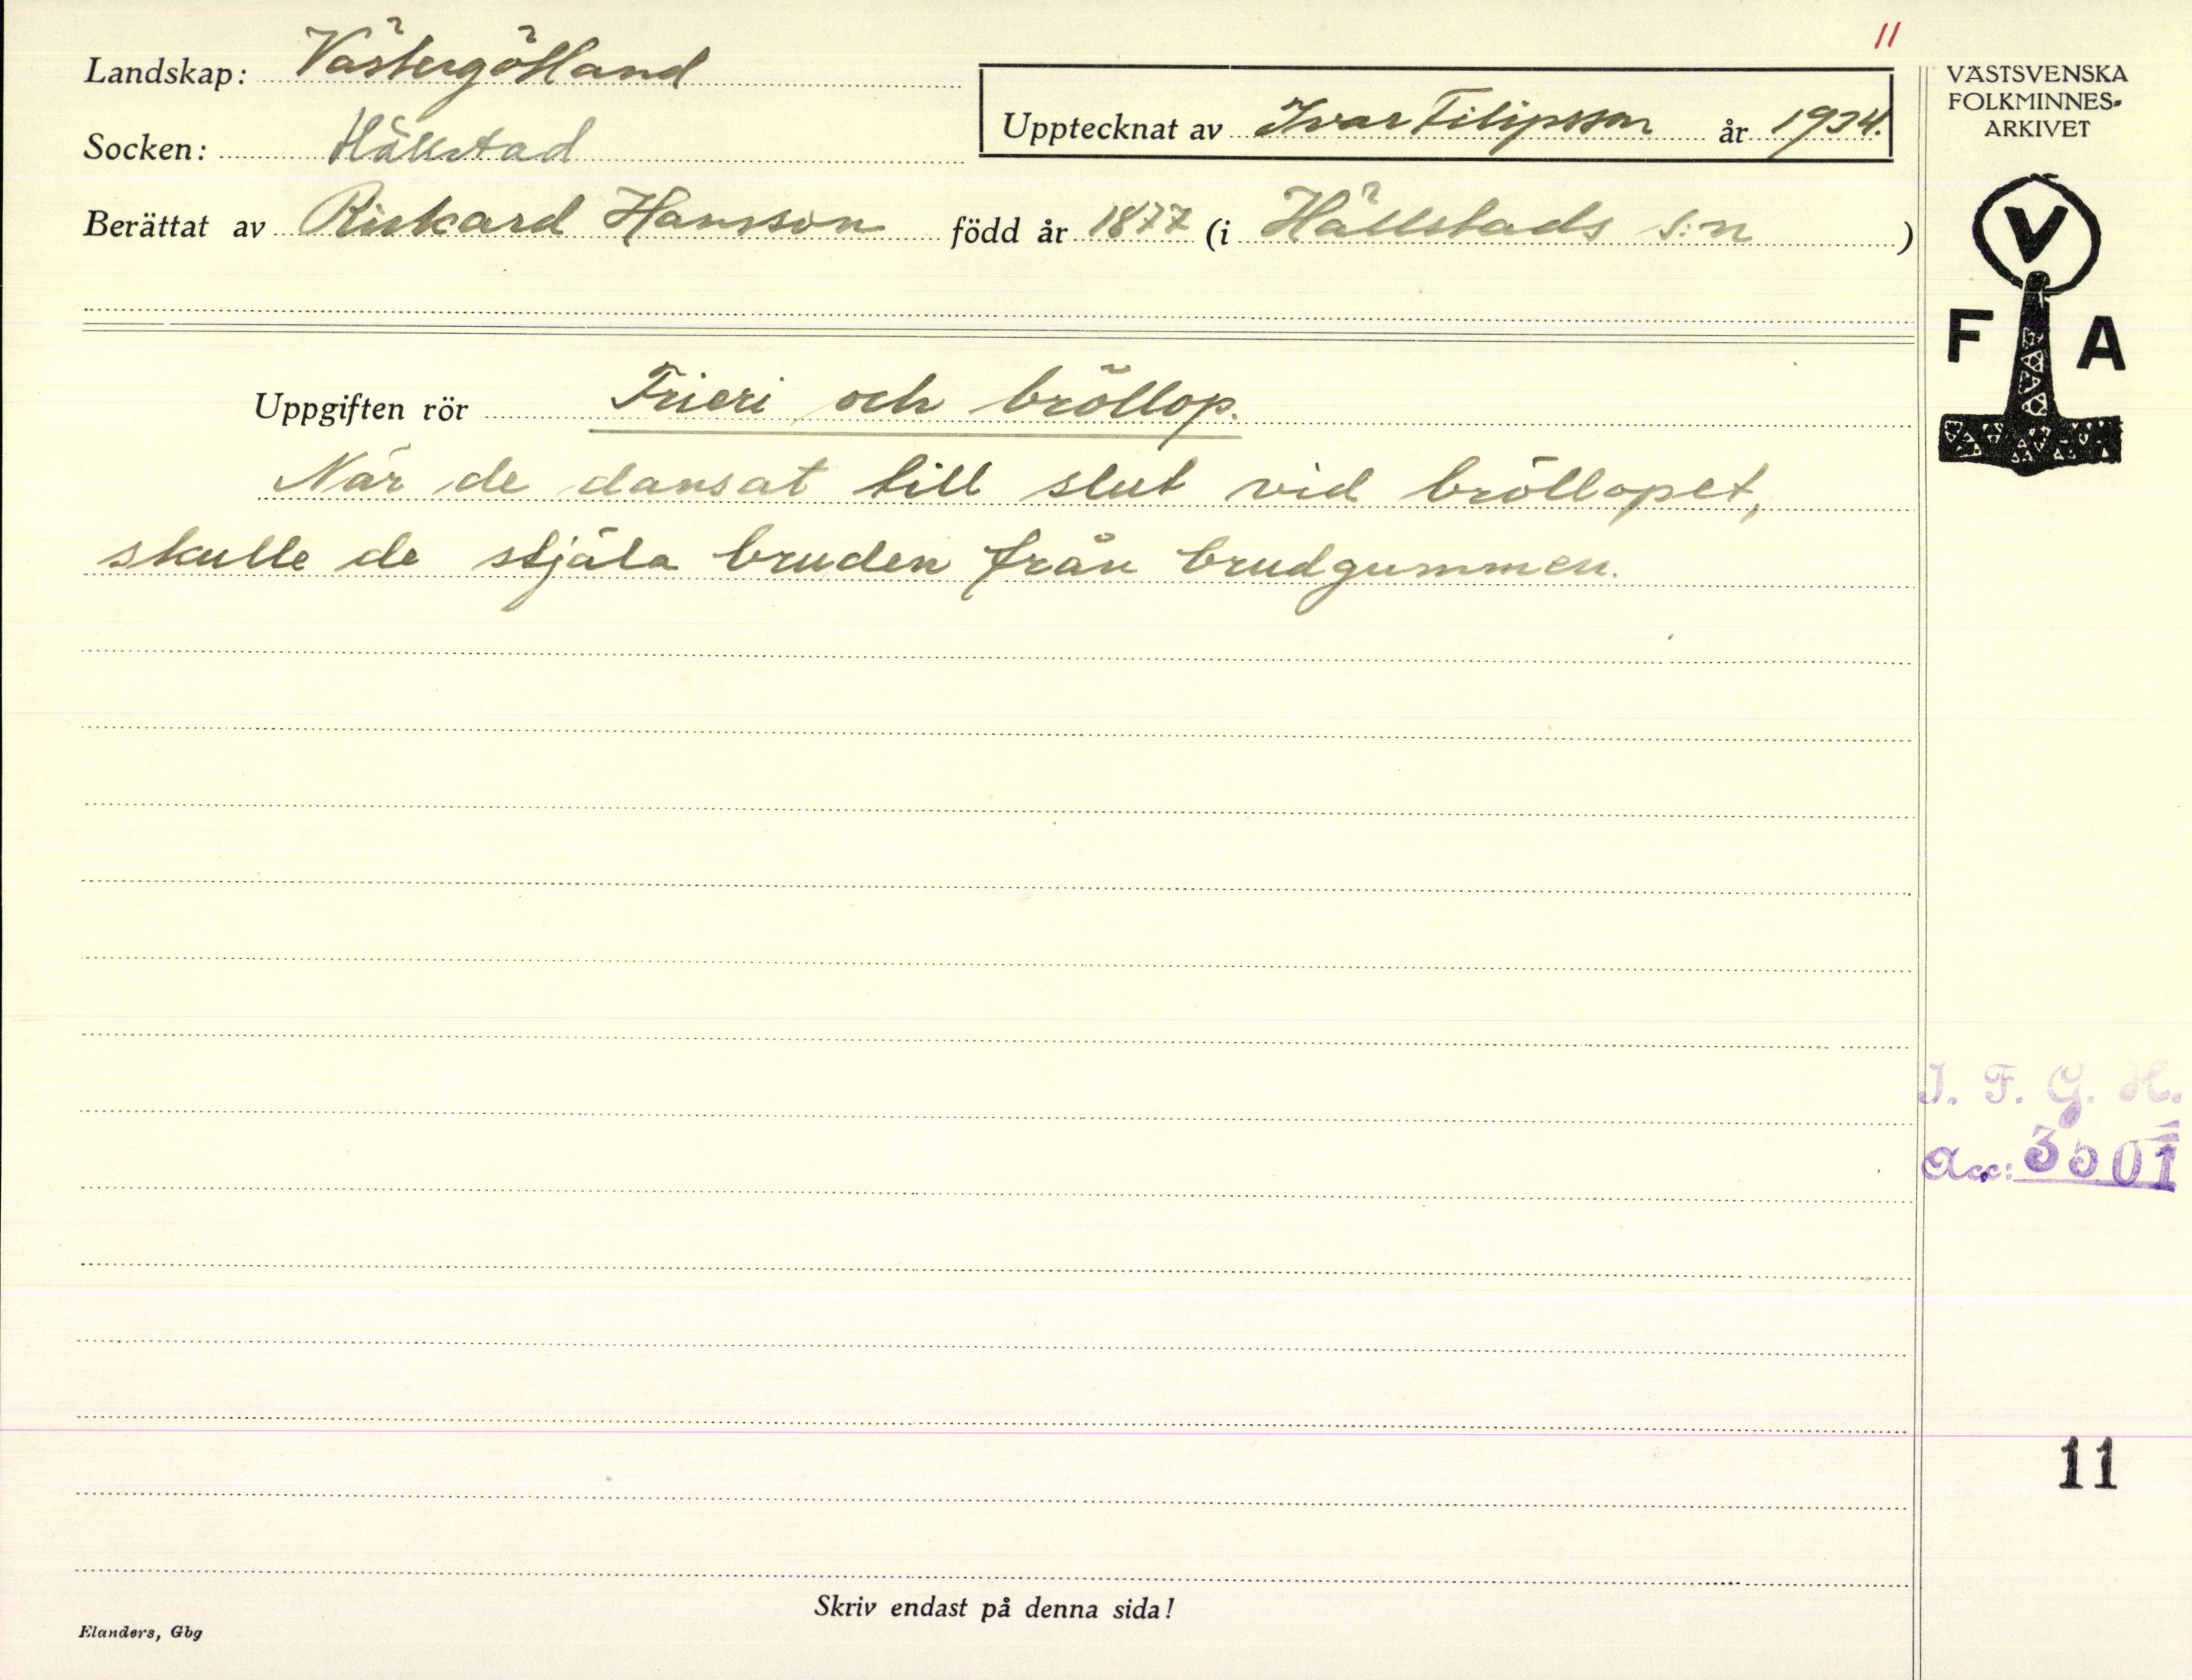 11
Landskap: Västergötland
Socken: Hällstad
Upptecknat av Ivar Filipsson år 1934.
Berättat av Rickard Hansson född år 1877 (i Hällstads s:n)
VÄSTSVENSKA
FOLKMINNES-
ARKIVET
V
F A
Uppgiften rör Frieri och bröllop.
När de dansat till slut vid bröllopet,
skulle de stjäla bruden från brudgummen.
I. F. G. H.
Acc: 3501
11
Skriv endast på denna sida!
Elanders, Gbg